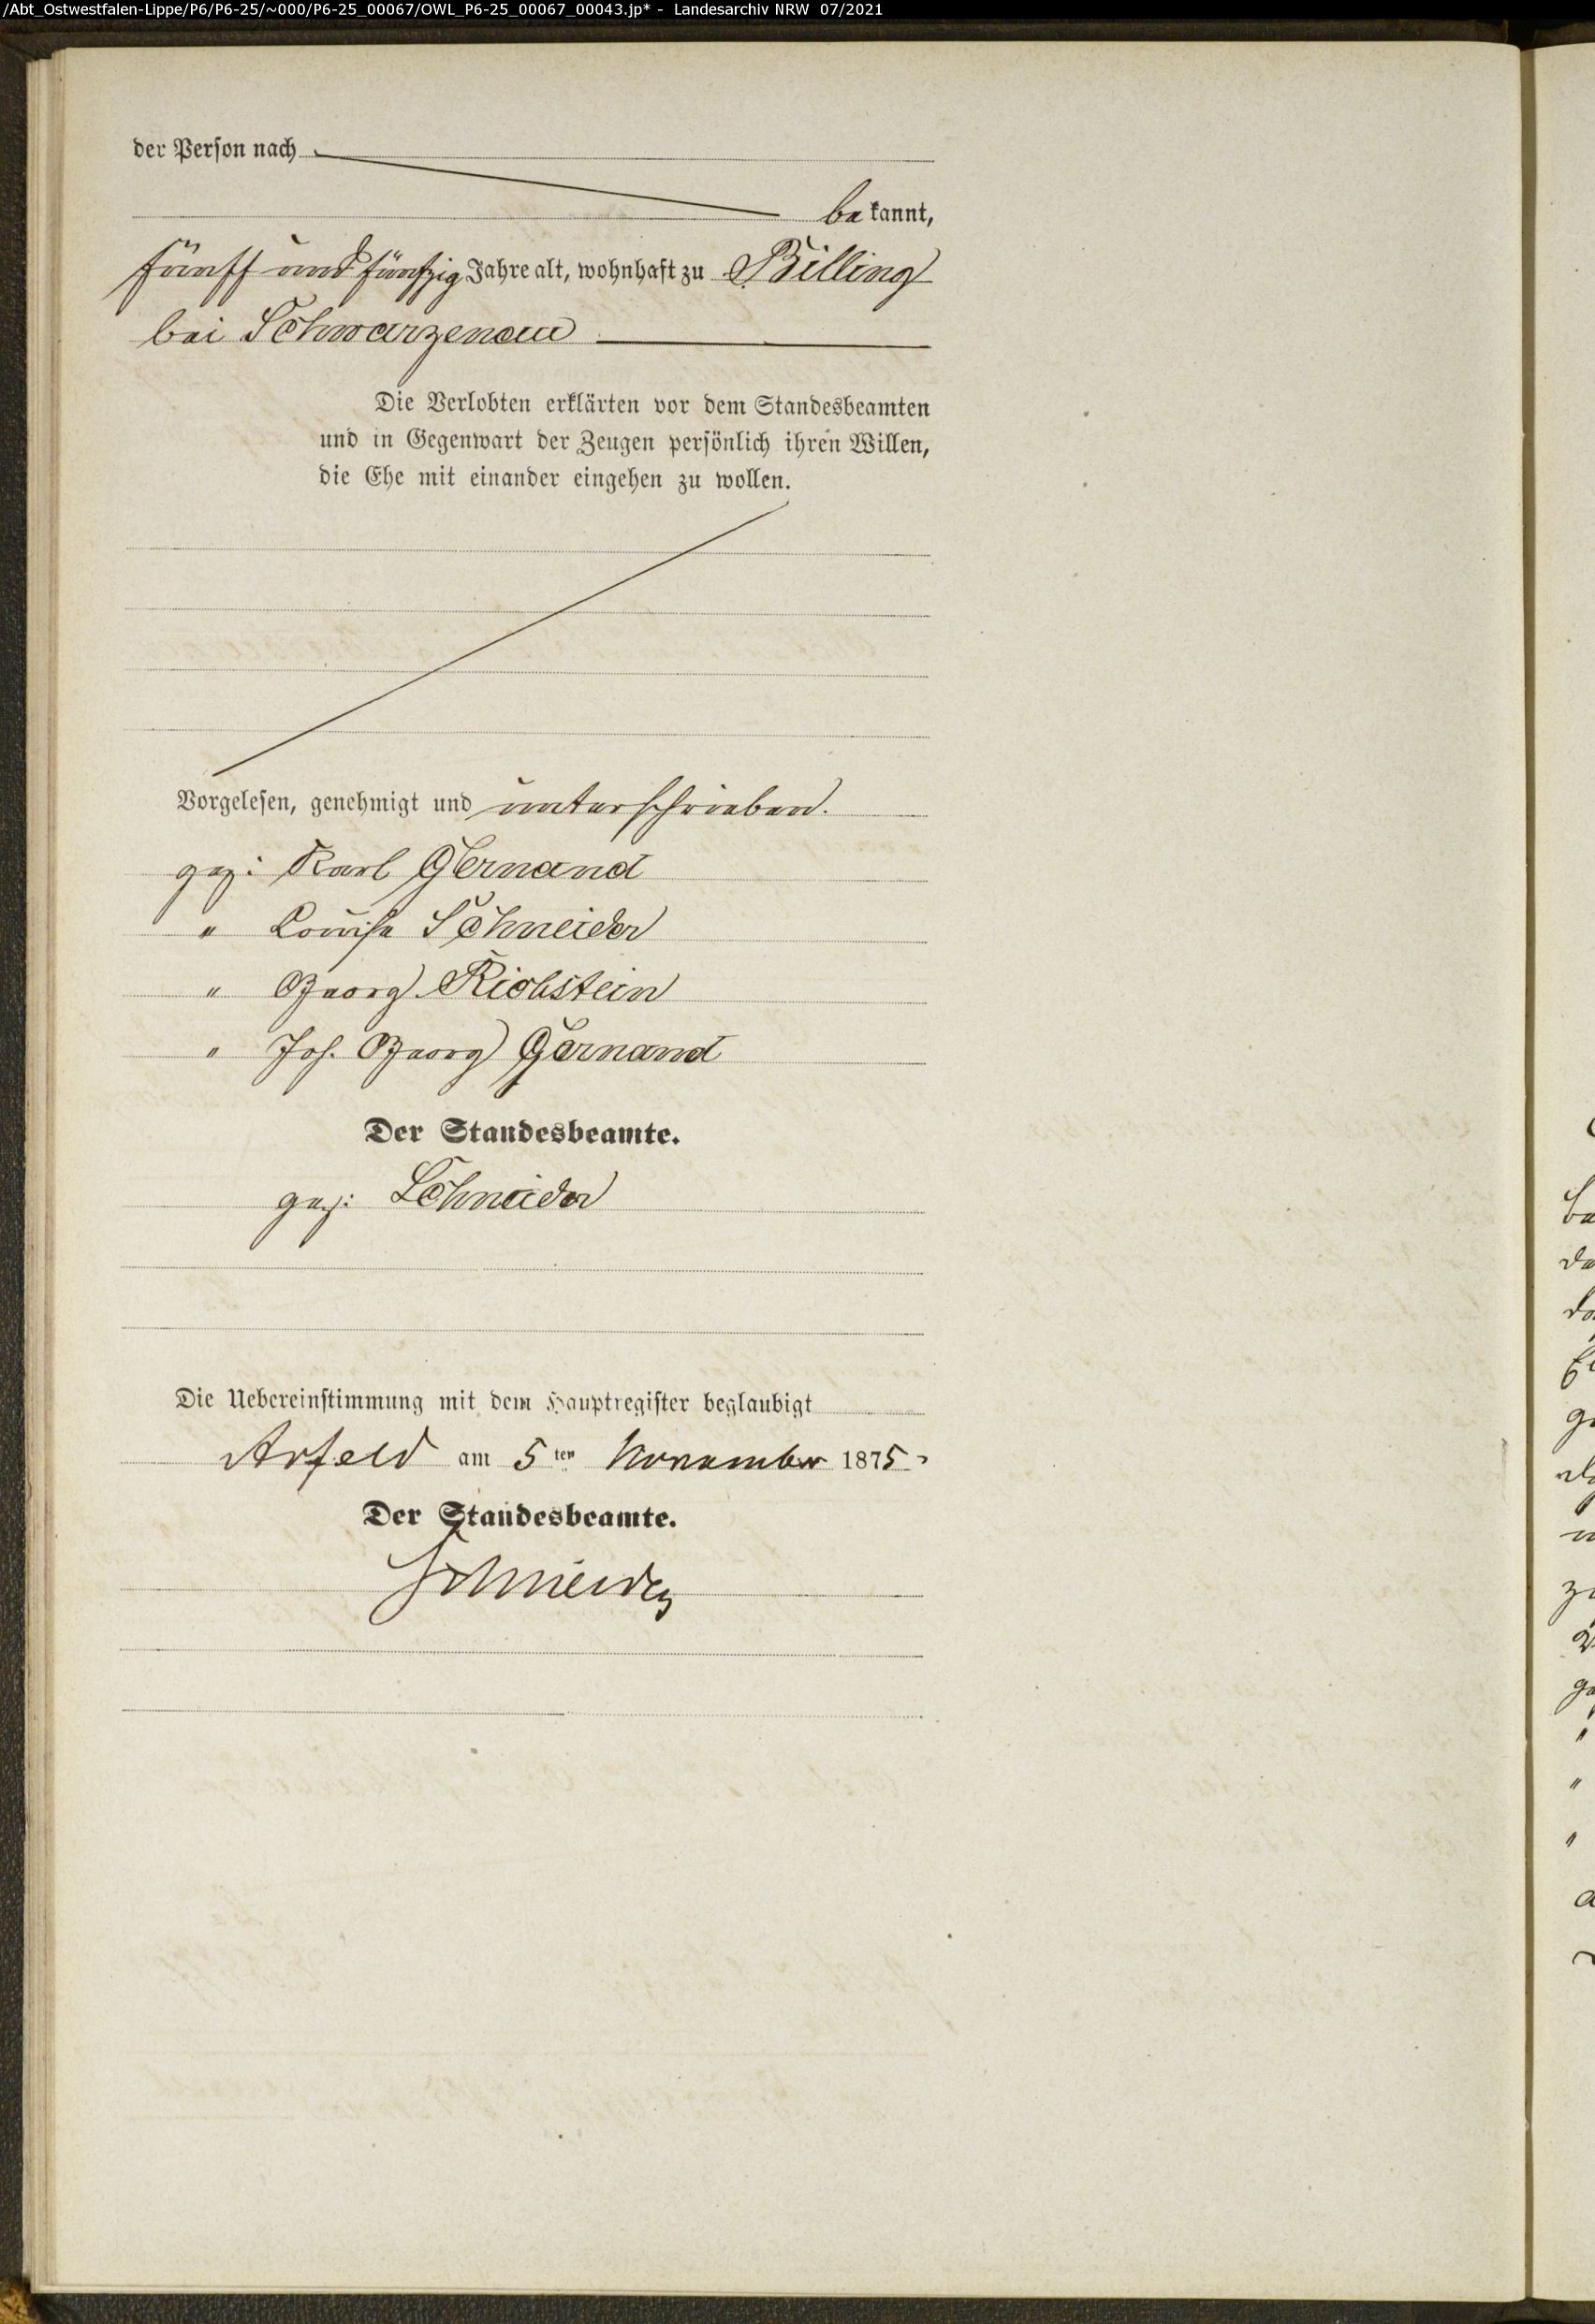 /Abt_Ostwestfalen-Lippe/P6/P6-25/~000/P6-25_00067/OWL_P6-25_00067_00043.jp* - Landesarchiv NRW 07/2021
der Person nach
bekannt,
fünff und fünfzig Jahre alt, wohnhaft zu Billing
bei Schwarzenau
Die Verlobten erklärten vor dem Standesbeamten
und in Gegenwart der Zeugen persönlich ihren Willen,
die Ehe mit einander eingehen zu wollen.
Vorgelesen, genehmigt und unterschrieben.
gez: Karl Gernand
" Louise Schneider
" Georg Rickstein
" Joh. Georg Gernand
Der Standesbeamte.
gez: Schneider
Die Uebereinstimmung mit dem Hauptregister beglaubigt
Arfeld am 5ten November 1875
Der Standesbeamte.
Schneider